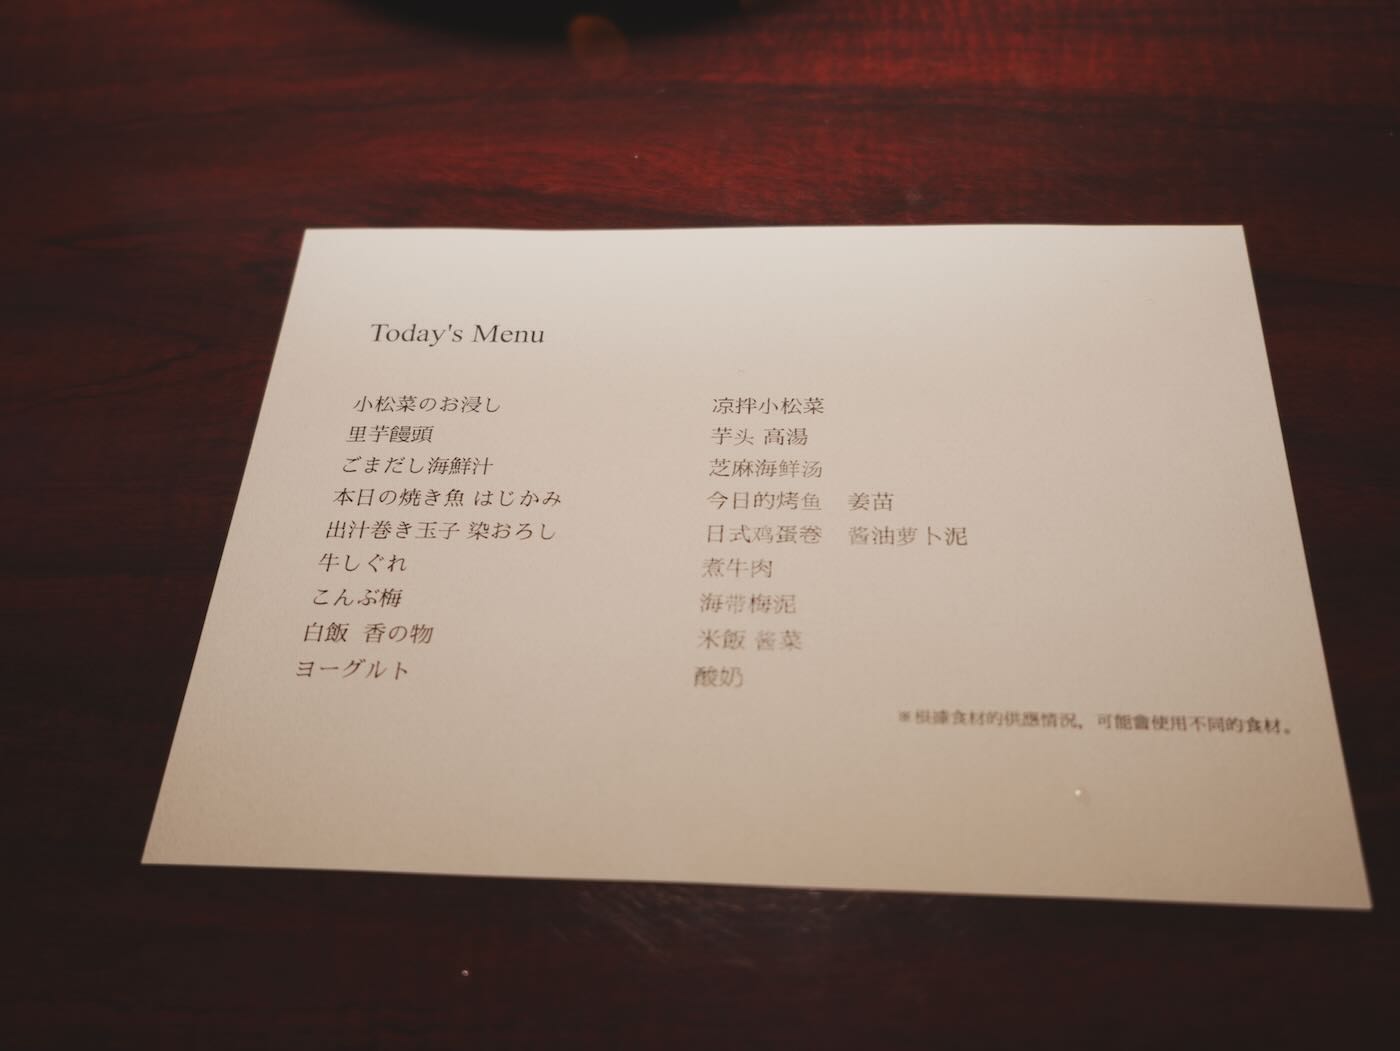 Today's Menu
小松菜のお浸し
里芋饅頭
ごまだし海鮮汁
本日の焼き魚 はじかみ
出汁巻き玉子 染おろし
牛しぐれ
こんぶ梅
白飯 香の物
ヨーグルト
凉拌小松菜
芋头 高湯
芝麻海鲜汤
今日的烤鱼 姜苗
日式鸡蛋卷 酱油萝卜泥
煮牛肉
海带梅泥
米飯 酱菜
酸奶
※根據食材的供應情況，可能會使用不同的食材。